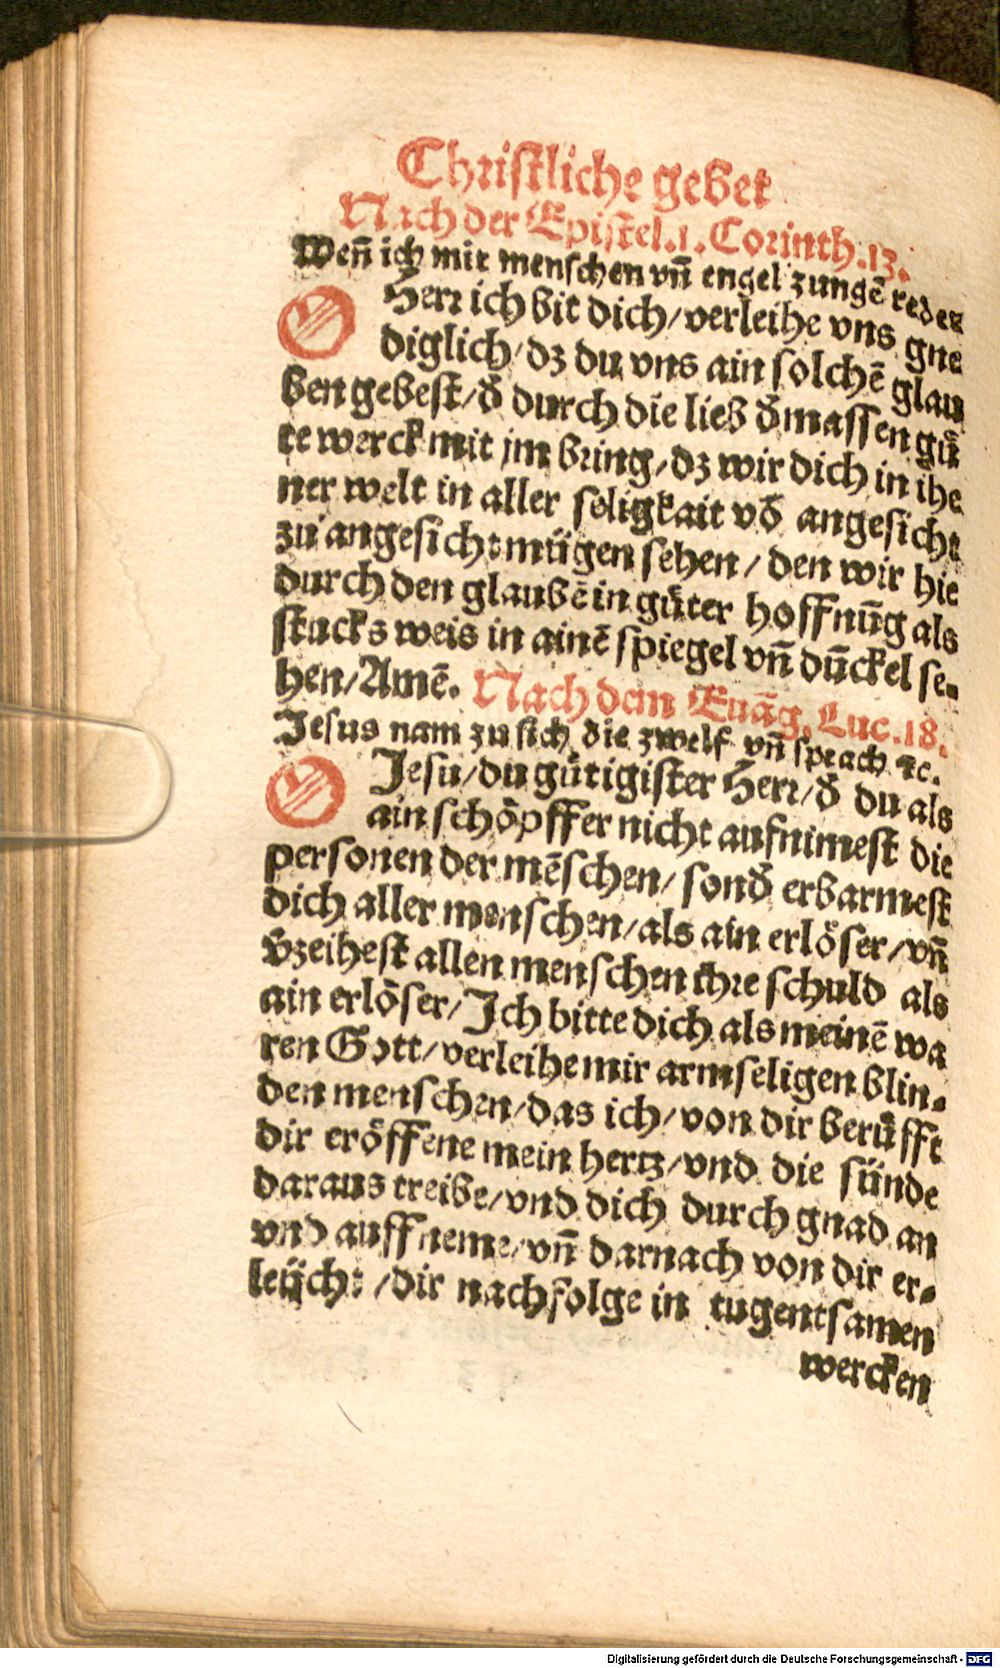 Christliche gebet
Nach der Epistel.1. Corinth.13.
Weñ ich mit menschen vñ engel zungē redet
O Herr ich bit dich/verleihe vns gne
diglich/dz du vns ain solchē glau
ben gebest/đ durch die lieb đmassen gů
te werck mit jm bring/dz wir dich in ihe
ner welt in aller seligkait vō angesicht
zů angesicht mügen sehen/den wir hie
durch den glaubē in gůter hoffnūg als
stucks weis in ainē spiegel vñ dūckel se⸗
hen/Amē. Nach dem Euāg. Luc.18.
Jesus nam zu sich die zwelf vñ sprach ꝛc.
O Jesu/du gütigister Herr/đ du als
ain schöpffer nicht aufnimest die
personen der mēschen/sonđ erbarmest
dich aller menschen/als ain erlöser/vñ
v̄zeihest allen menschen ihre schuld als
ain erlöser/Ich bitte dich als meinē wa
ren Gott/verleihe mir armseligen blin⸗
den menschen/das ich/von dir berůfft
dir eröffene mein hertz/vnd die sünde
daraus treibe/vnd dich durch gnad an
vnd auffneme/vñ darnach von dir er⸗
leücht/dir nachfolge in tugentsamen
wercken
Digitalisierung gefördert durch die Deutsche Forschungsgemeinschaft - DFG